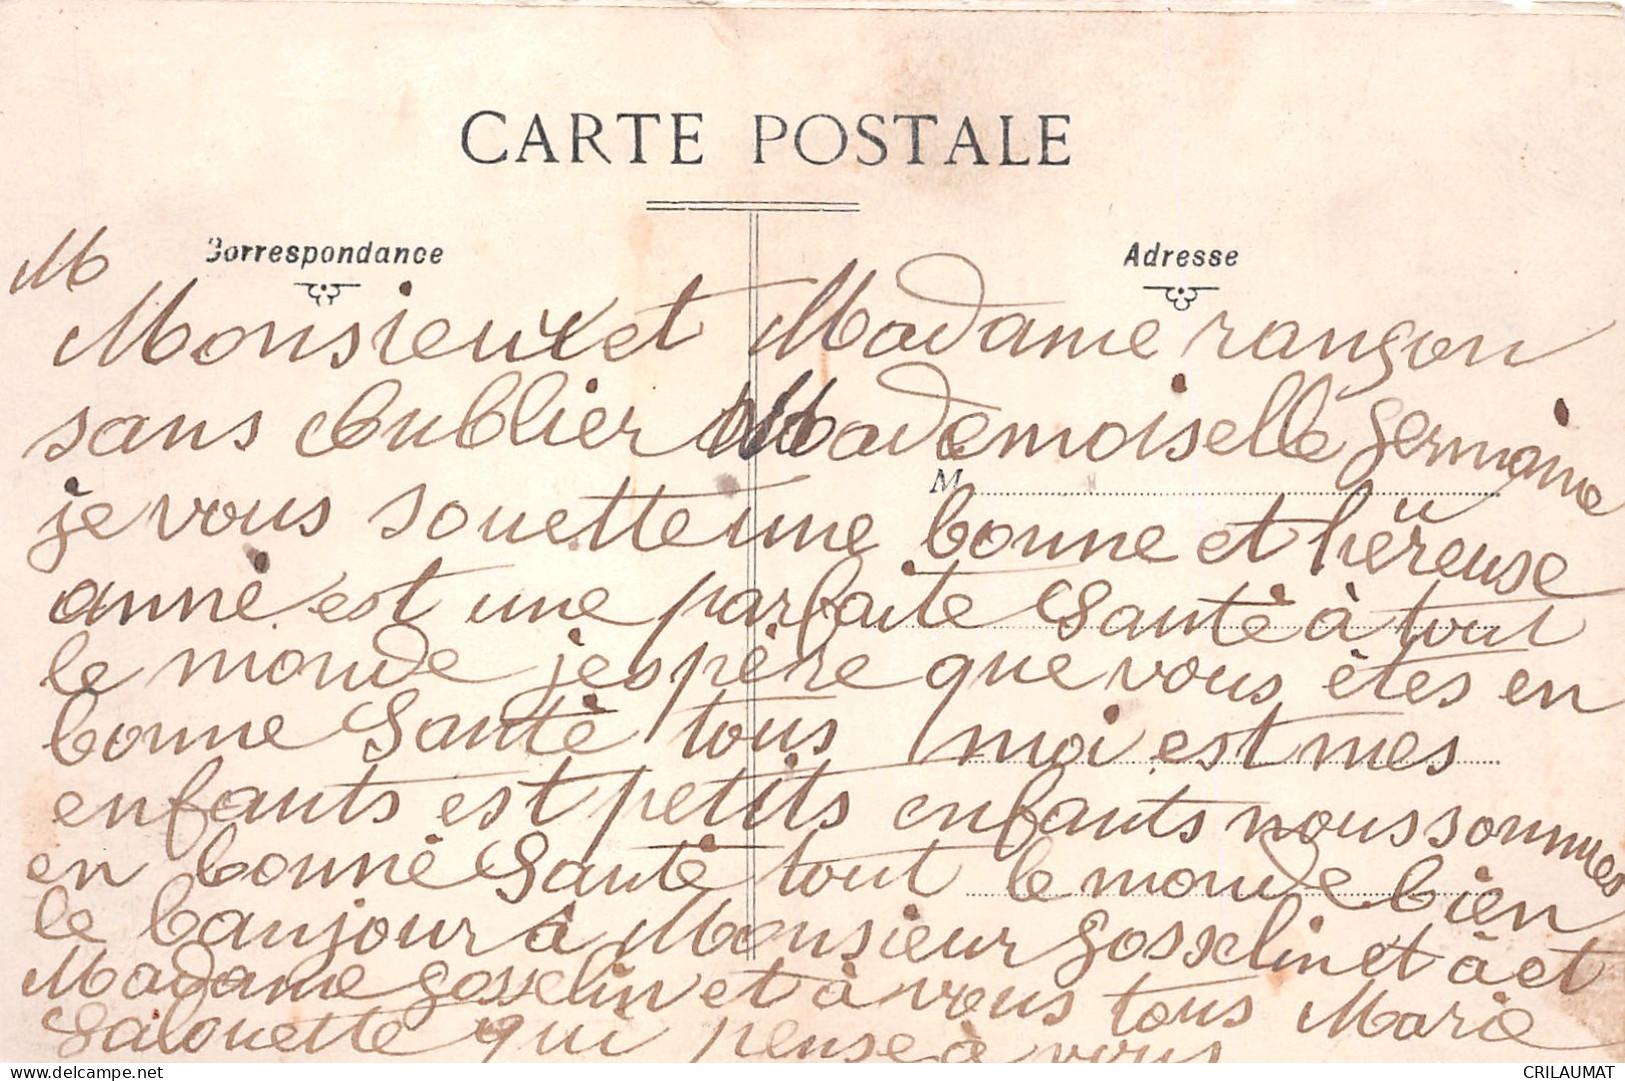 CARTE POSTALE
Correspondance
Adresse
M
Monsieux et Madame rangon
sans Oublier Mademoiselle germaine
M
je vous souette une bonne et hereuse
anné est une parfaite Santé à tout
le monde jespère que vous êtes en
bonne Santé tous moi est mes
enfants est petits enfants nous sommes
en bonné Santé tout le monde bien
le banjour à Monsieur gosselin et à et
Madame gosselin et à vous tous Marie
galouette qui pense à vous
delcampe.net
CRILAUMAT